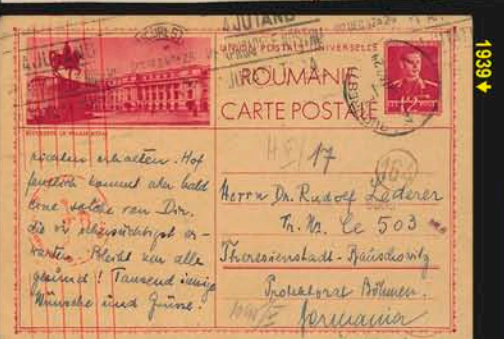 1939
AJUTAND
UNION POSTALE UNIVERSELLE
ROUMANIE
CARTE POSTALE
12
BUCURESTI
H I/17
164
richten erhalten. Hof
fentlich kommt aber bald
eine solche von Dir,
die wir
warten. Bleibt nur alle
gesund! Tausend innige
Wünsche und Grüsse.
Herrn Dr. Rudolf Lederer
Tr. Nr. Ce 503
Theresienstadt - Bauschowitz
Protektorat Böhmen.
Germania